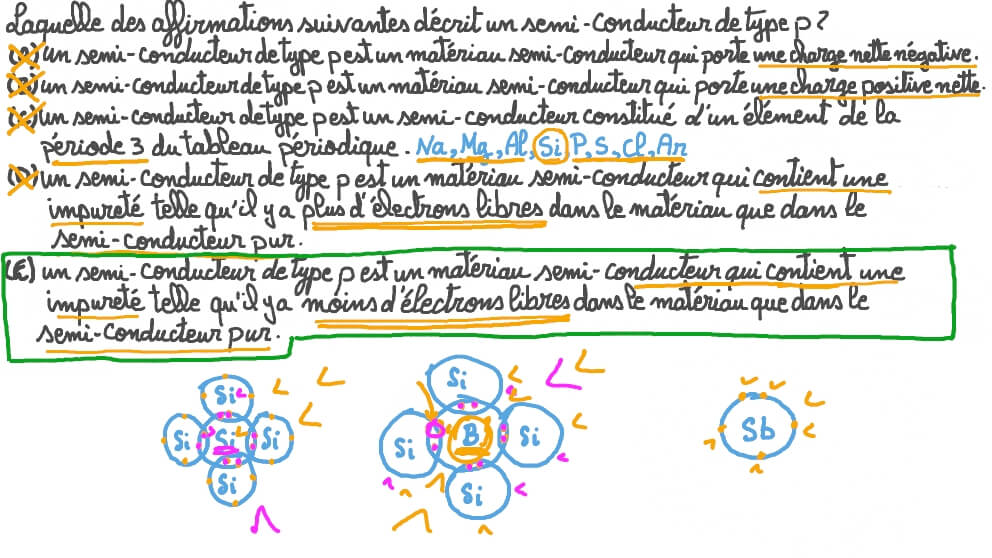 Laquelle des affirmations suivantes décrit un semi-conducteur de type p ?
(A) un semi-conducteur de type p est un matériau semi-conducteur qui porte une charge nette négative.
(B) un semi-conducteur de type p est un matériau semi-conducteur qui porte une charge positive nette.
(C) un semi-conducteur de type p est un semi-conducteur constitué d'un élément de la
période 3 du tableau périodique. Na, Mg, Al, Si, P, S, Cl, Ar
(D) un semi-conducteur de type p est un matériau semi-conducteur qui contient une
impureté telle qu'il y a plus d'électrons libres dans le matériau que dans le
semi-conducteur pur.
(E) un semi-conducteur de type p est un matériau semi-conducteur qui contient une
impureté telle qu'il y a moins d'électrons libres dans le matériau que dans le
semi-conducteur pur.
Si Si
Si Si Si Si B Si Sb
Si Si